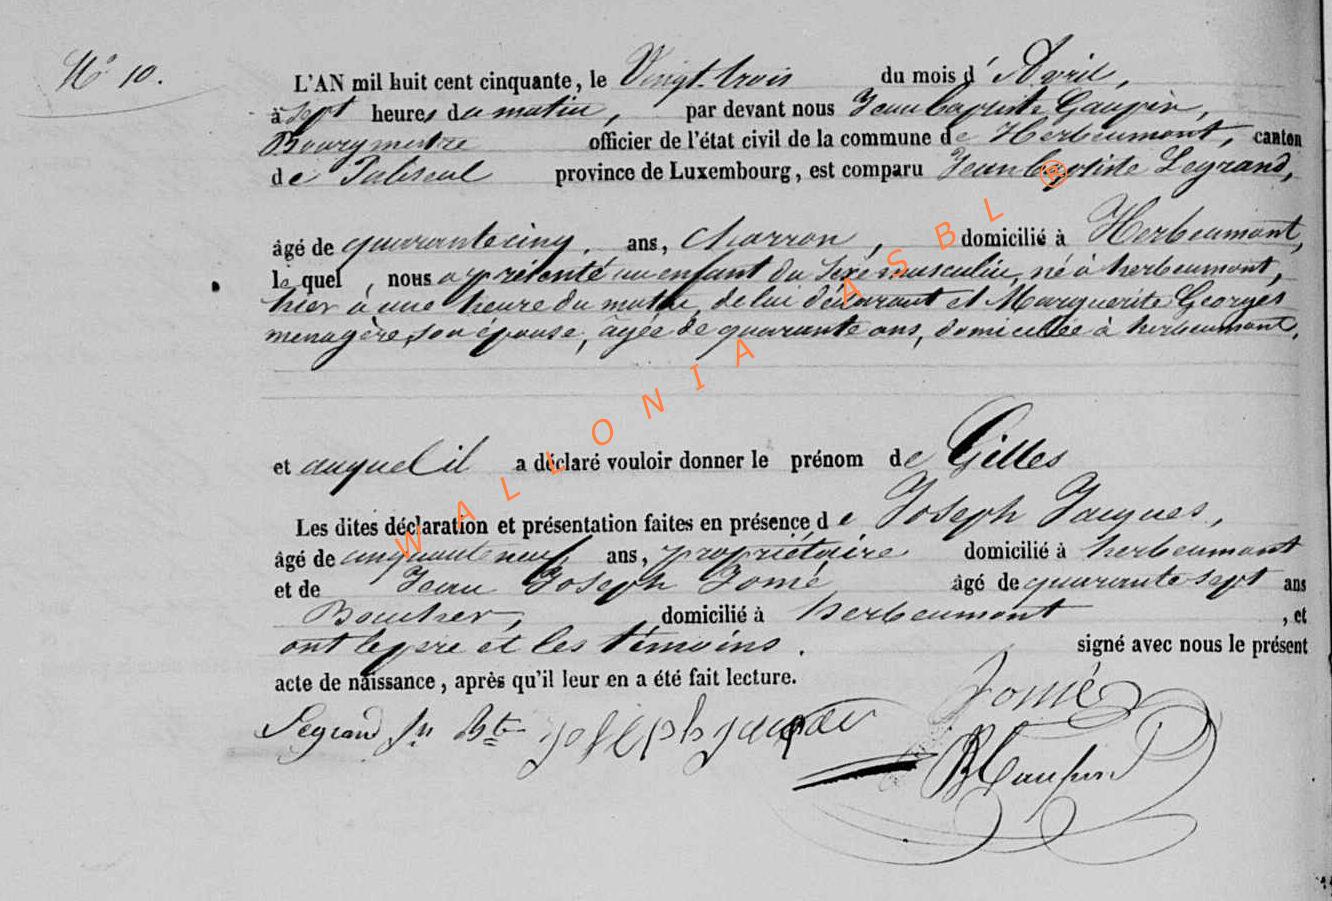 N° 10.
L'AN mil huit cent cinquante, le Vingt-trois du mois d'Avril,
à sept heures du matin, par devant nous Jean Baptiste Gaupin,
Bourgmestre officier de l'état civil de la commune de Herbeumont, canton
de Paliseul province de Luxembourg, est comparu Jean Baptiste Legrand,
âgé de quarante cinq ans, charron, domicilié à Herbeumont,
lequel, nous a présenté un enfant du sexe masculin, né à herbeumont,
hier à une heure du matin, de lui déclarant et Marguerite Georges
menagère, son épouse, agée de quarante ans, domiciliée à herbeumont.
et auquel il a déclaré vouloir donner le prénom de Gilles
Les dites déclaration et présentation faites en présence de Joseph Jacques,
âgé de cinquante neuf ans, propriétaire domicilié à herbeumont
et de Jean Joseph Jomé âgé de quarante sept ans
Boucher, domicilié à herbeumont, et
ont le pere et les témoins. signé avec nous le présent
acte de naissance, après qu'il leur en a été fait lecture.
Legrand Jn Bte Joseph jacque Jomé
JB Gaupin
WALLONIA ASBL ®